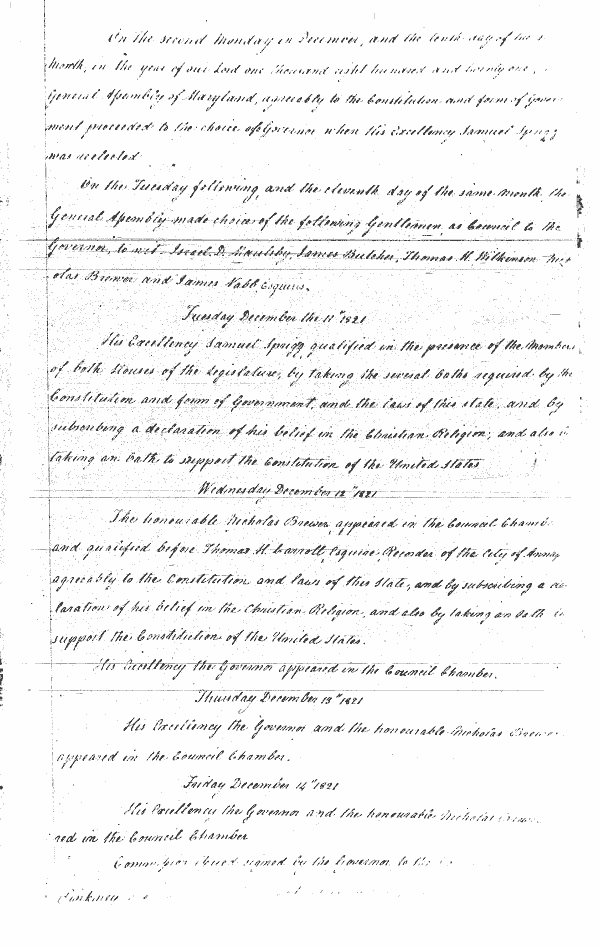 On the second Monday in December, and the tenth day of the
Month, in the year of our Lord one thousand eight hundred and twenty one,
General Assembly of Maryland, agreeably to the Constitution and form of Govern
ment proceeded to the choice of a Governor when His Excellency Samuel Sprigg
was reelected
On the Tuesday following, and the eleventh day of the same month, the
General Assembly made choice of the following Gentlemen, as Council to the
Governor, to wit, Israel D. Maulsby, James Butcher, Thomas H. Wilkinson Nich
olas Brewer and James Nabb Esquires.
Tuesday December the 11th 1821
His Excellency Samuel Sprigg qualified in the presence of the Members
of both Houses of the Legislature, by taking the several oaths required by the
Constitution and form of Government, and the laws of this state, and by
subscribing a declaration of his belief in the Christian Religion; and also
taking an oath to support the Constitution of the United States
Wednesday December 12th 1821
The honourable Nicholas Brewer, appeared in the Council Chamb
and qualified before Thomas H. Carroll, Esquire, Recorder of the City of Annap
agreeably to the Constitution and laws of this State, and by subscribing a de
laration of his belief in the Christian Religion, and also by taking an oath
support the Constitution of the United States.
His Excellency the Governor appeared in the Council Chamber.
Thursday December 13th 1821
His Excellency the Governor and the honourable Nicholas Brewer
appeared in the Council Chamber.
Friday December 14th 1821
His Excellency the Governor and the honourable Nicholas Brewer
red in the Council Chamber
Commission issued signed by the Governor to
Pinkney